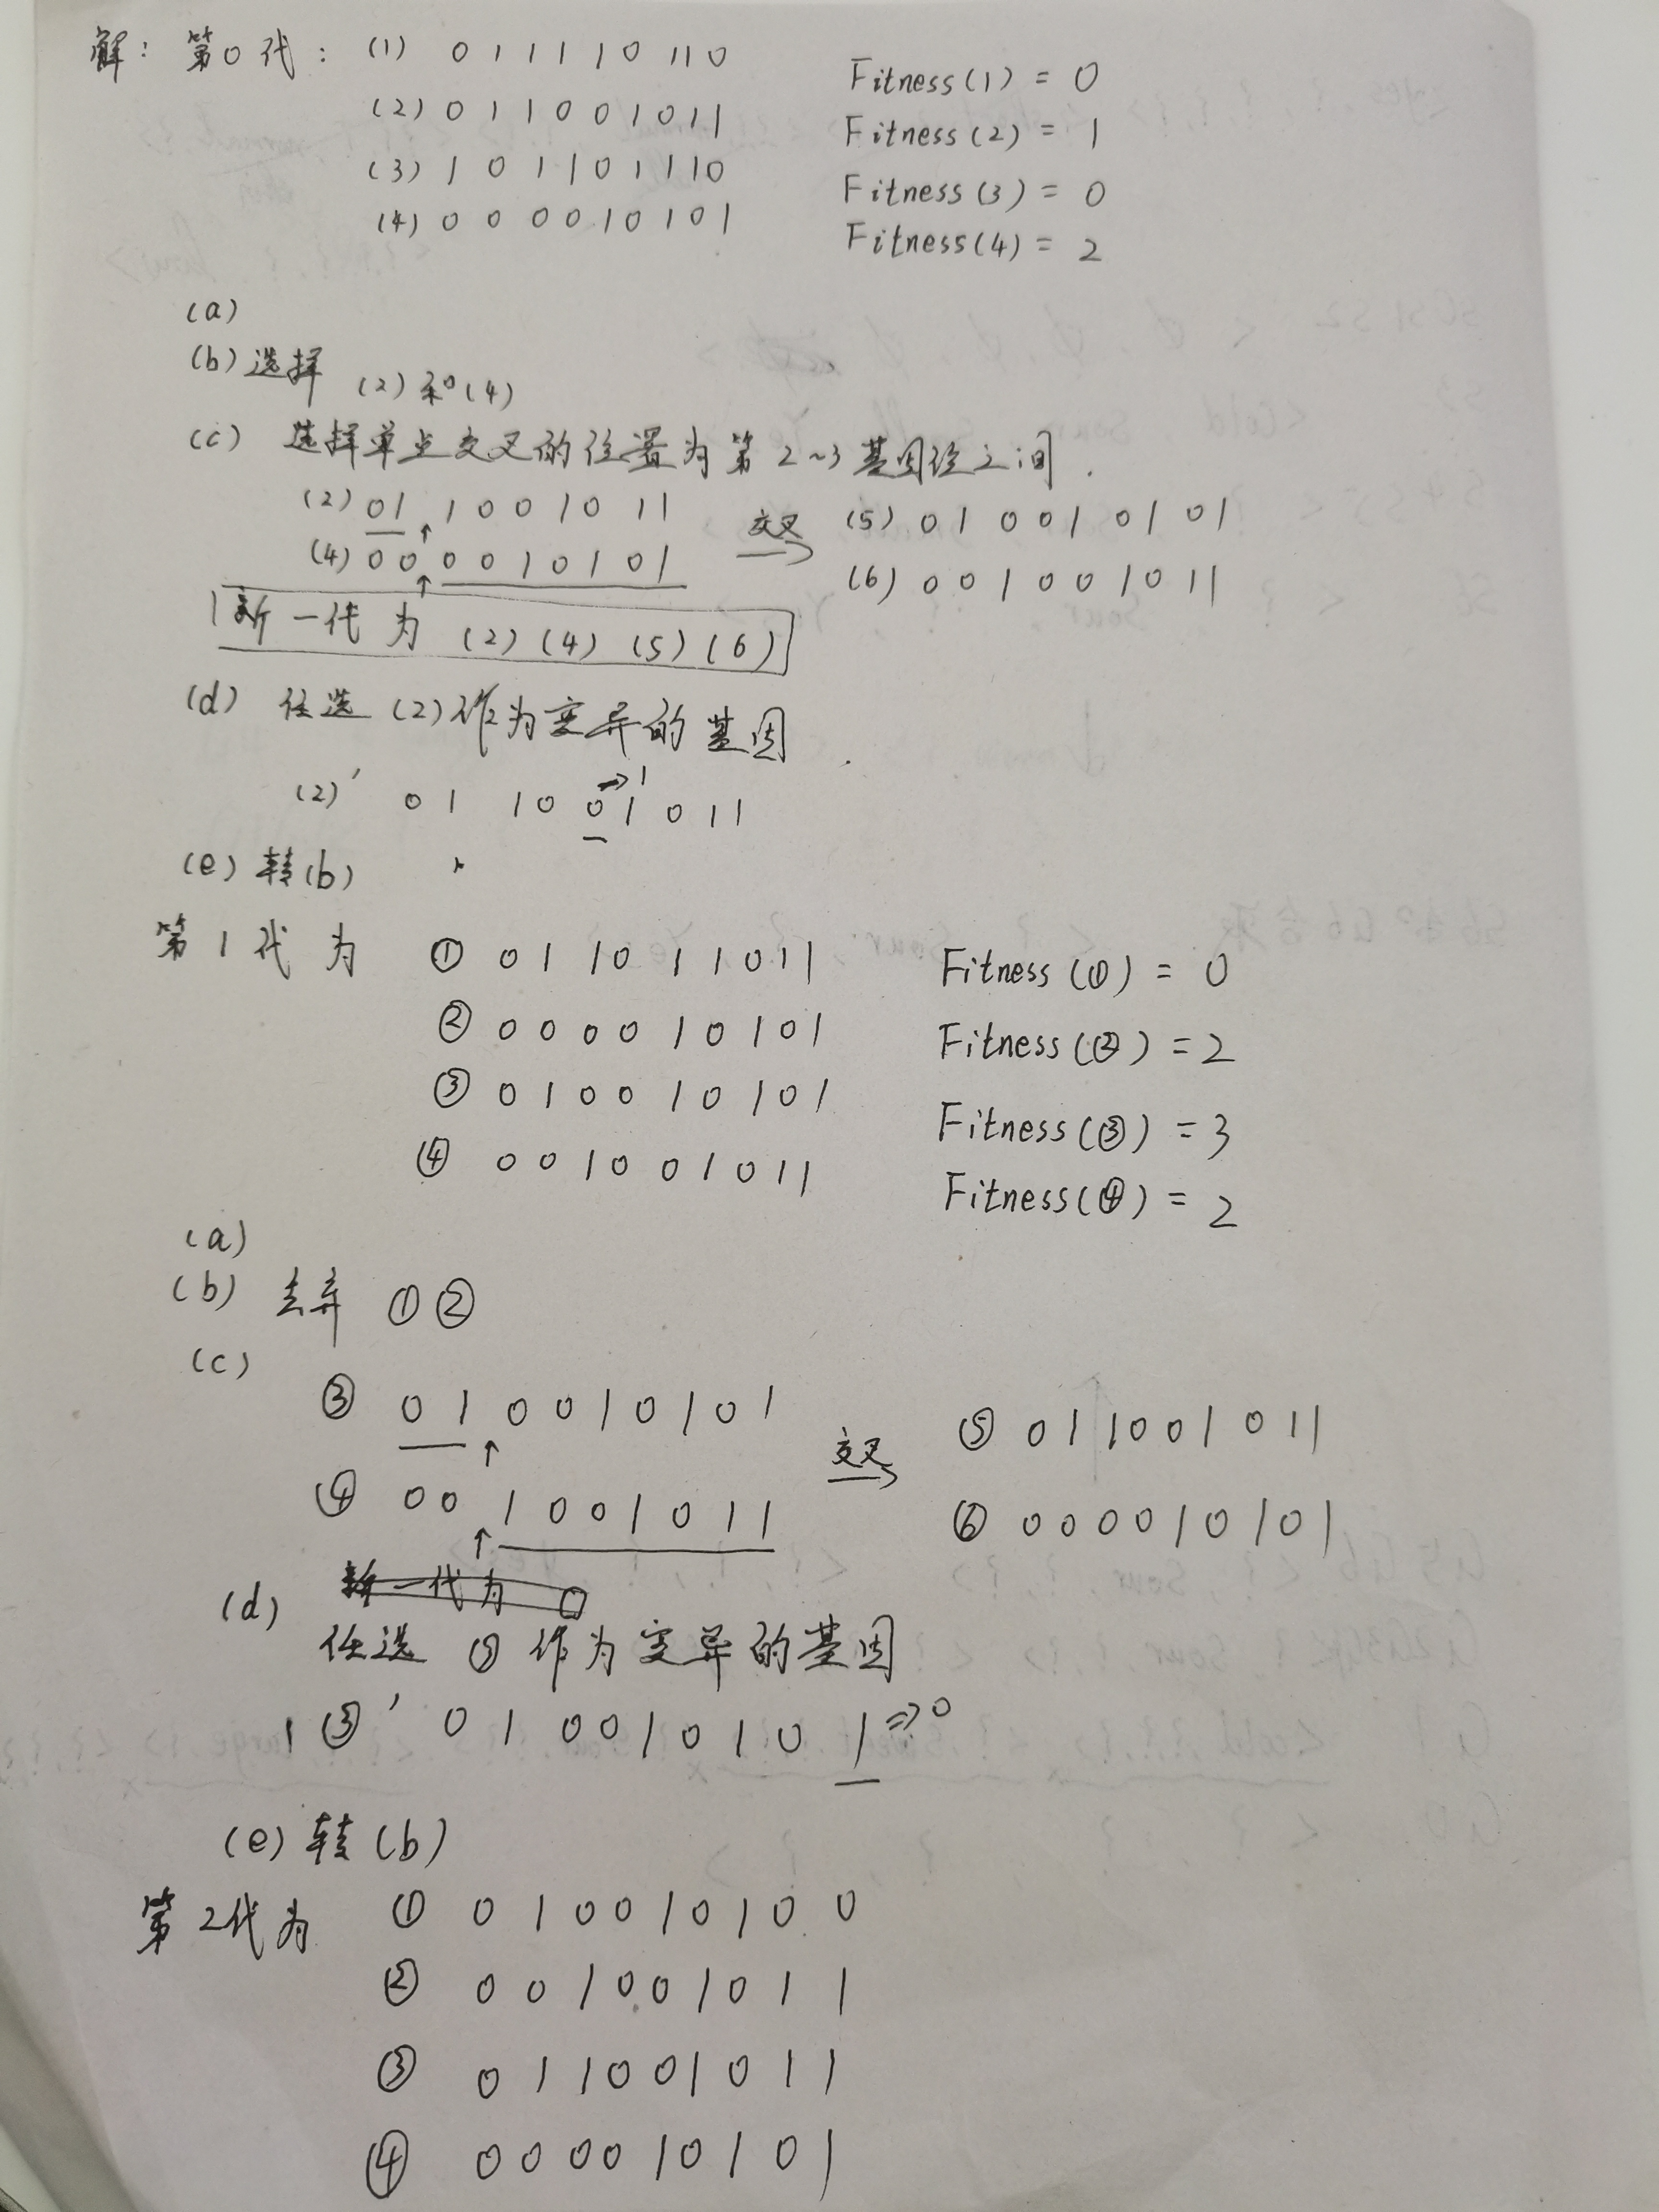 解: 第0代: (1) 0 1 1 1 1 0 1 1 0 Fitness(1) = 0
(2) 0 1 1 0 0 1 0 1 1 Fitness(2) = 1
(3) 1 0 1 1 0 1 1 1 0 Fitness(3) = 0
(4) 0 0 0 0 1 0 1 0 1 Fitness(4) = 2
(a)
(b) 选择 (2)和(4)
(c) 选择单点交叉的位置为第2~3基因位之间.
(2) 0 1 ↑ 1 0 0 1 0 1 1 交叉→ (5) 0 1 0 0 1 0 1 0 1
(4) 0 0 ↑ 0 0 1 0 1 0 1 (6) 0 0 1 0 0 1 0 1 1
新一代为 (2) (4) (5) (6)
(d) 任选(2)作为变异的基因.
(2)' 0 1 1 0 0→1 1 0 1 1
(e) 转(b)
第1代为 ① 0 1 1 0 1 1 0 1 1 Fitness(①) = 0
② 0 0 0 0 1 0 1 0 1 Fitness(②) = 2
③ 0 1 0 0 1 0 1 0 1 Fitness(③) = 3
④ 0 0 1 0 0 1 0 1 1 Fitness(④) = 2
(a)
(b) 去弃 ① ②
(c)
③ 0 1 ↑ 0 0 1 0 1 0 1 交叉→ ⑤ 0 1 1 0 0 1 0 1 1
④ 0 0 ↑ 1 0 0 1 0 1 1 ⑥ 0 0 0 0 1 0 1 0 1
新一代为
(d) 任选 ③ 作为变异的基因
③' 0 1 0 0 1 0 1 0 1⇒0
(e) 转(b)
第2代为 ① 0 1 0 0 1 0 1 0 0
② 0 0 1 0 0 1 0 1 1
③ 0 1 1 0 0 1 0 1 1
④ 0 0 0 0 1 0 1 0 1